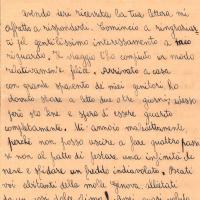 avendo ieri ricevuta la tua lettera mi
affretto a risponderti. Comincio a ringraziar=
ti pel gentilissimo interessamento a mio
riguardo. Il viaggio l'ho compiuto in modo
relativamente felice. Arrivato a casa
con grande spavento dei miei genitori ho
dovuto stare a letto due o tre giorni; adesso
però sto bene e spero d'essere guarito
completamente. Mi annoio maledettamente
perché non posso uscire a fare quattro passi
se non al patto di pestare una infinità di
neve e sfidare un freddo indiavolato. Beati
voi abitanti della molle Genova, allietati
da un così dolce clima!